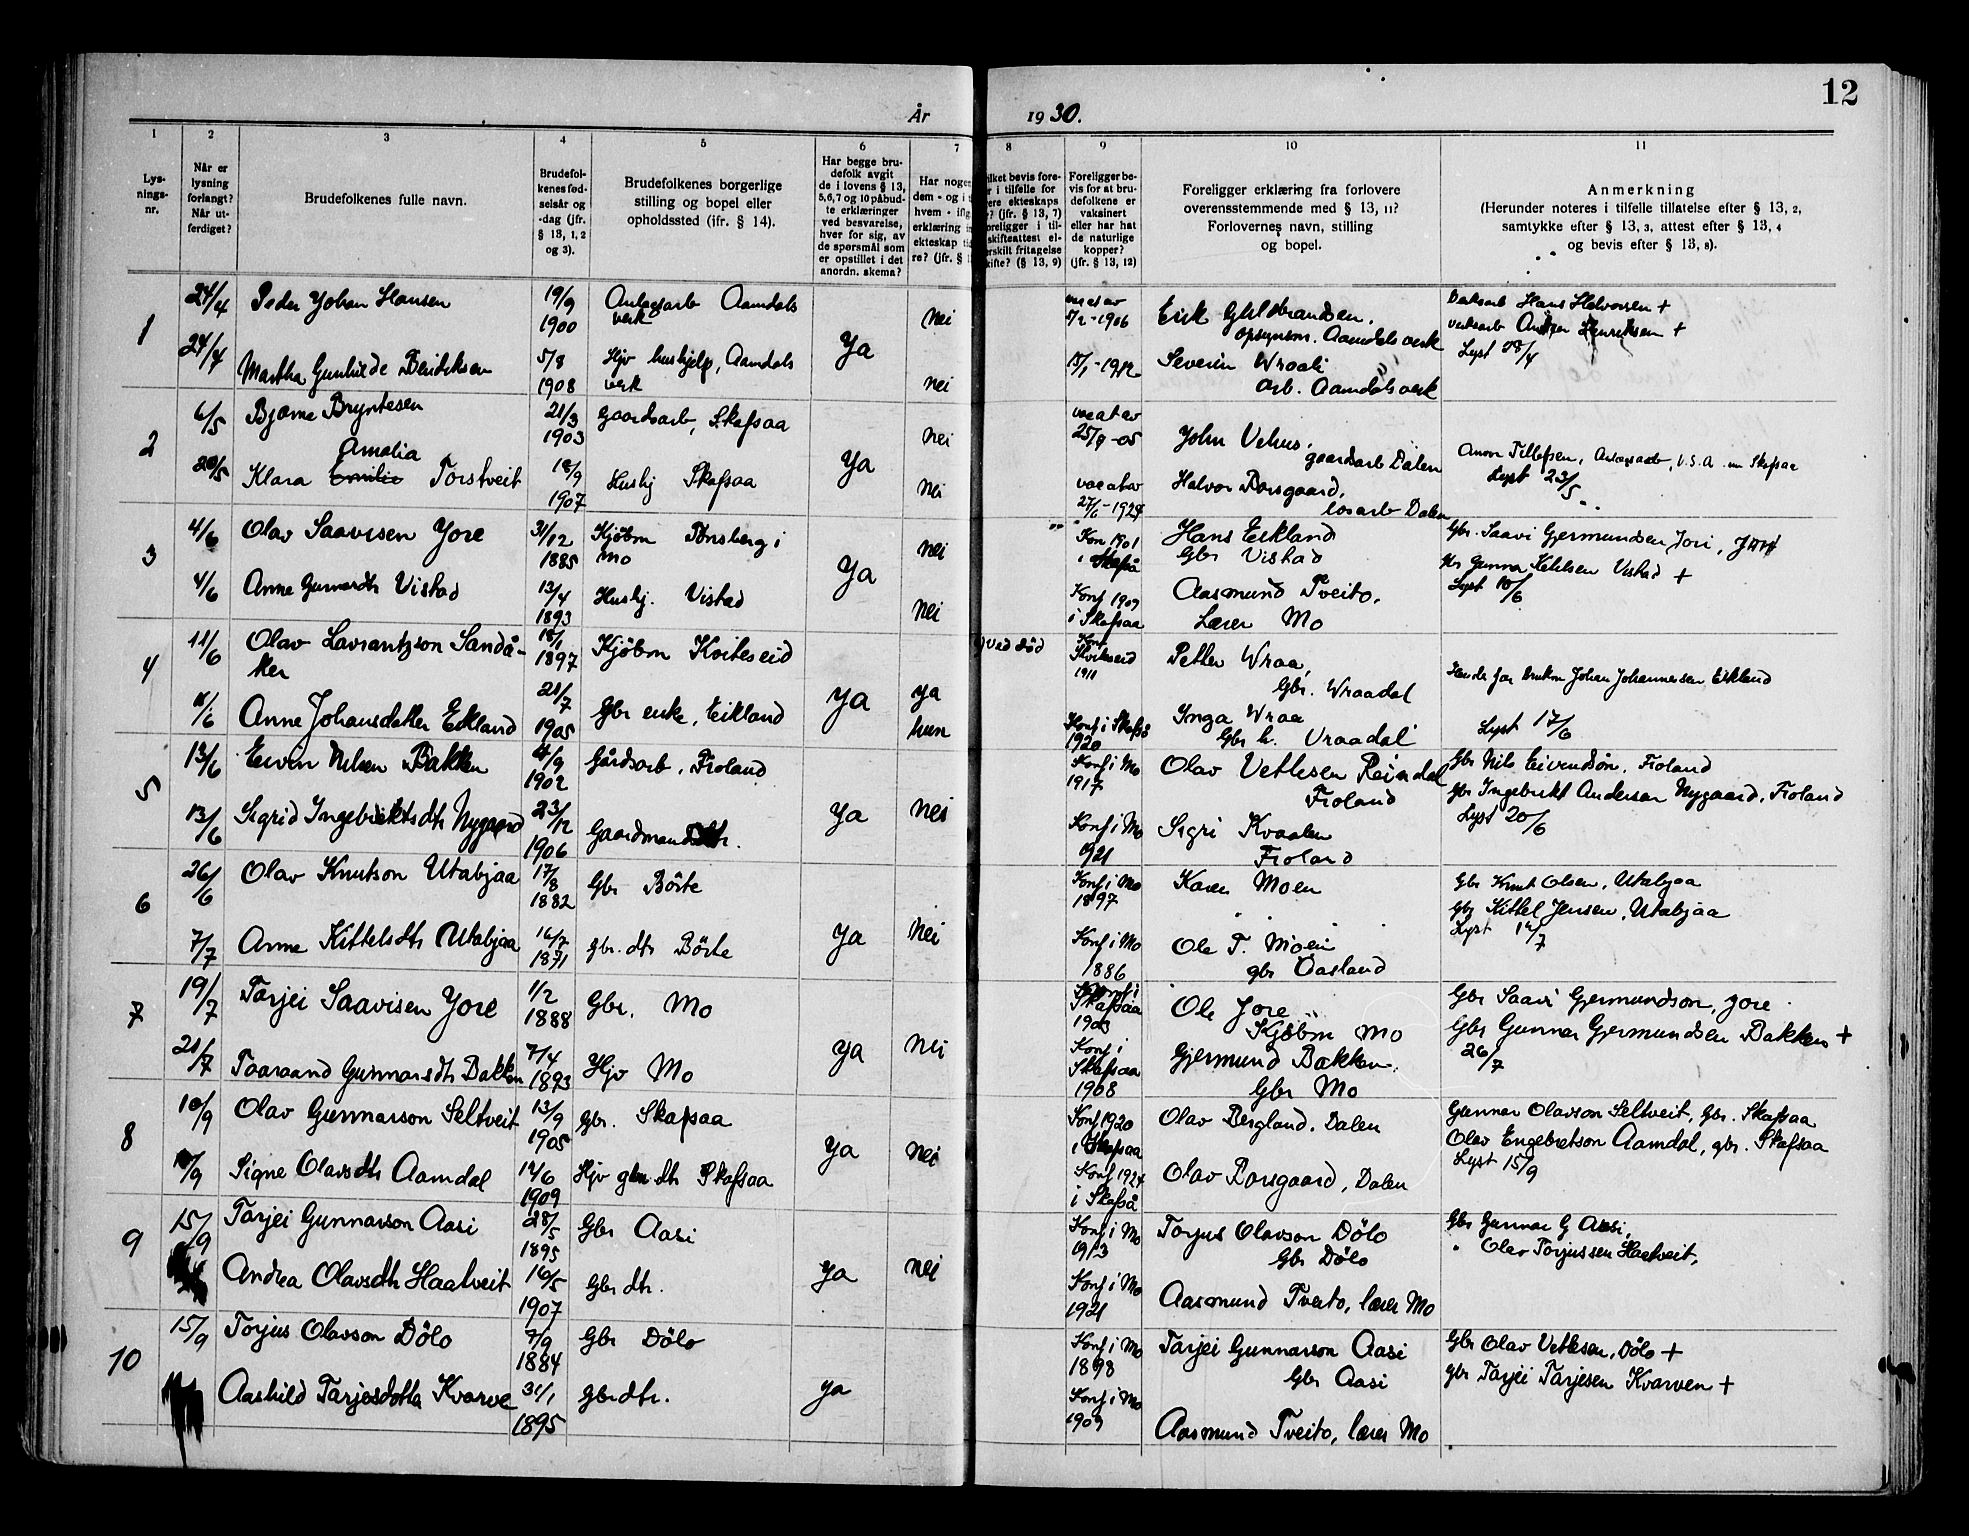 12
År 1930.
1 2 3 4 5 6 7 8 9 10 11
Lys-
nings-
nr.
Når er
lysning
forlangt?
Når ut-
ferdiget?
Brudefolkenes fulle navn.
Brudefol-
kenes fød-
selsår og
-dag (jfr.
§ 13, 1, 2
og 3).
Brudefolkenes borgerlige
stilling og bopel eller
opholdssted (ifr. § 14).
Har begge bru-
defolk avgit
de i lovens § 13,
5,6,7 og 10 påbud-
te erklæringer
ved besvarelse,
hver for sig, av
de spørsmål som
er opstillet i det
anordn. skema?
Har nogen
dem - og i t
hvem - ifl
erklæring in
ekteskap tid
re? (jfr. § 1
ilket bevis fore-
r i tilfelle for
ere ekteskaps
? (jfr. § 13, 7)
oreligger i til-
skifteattest el-
erskilt fritagelse
kifte? (§ 13, 9)
Foreligger be-
vis for at bru-
defolkene er
vaksinert
eller har hat
de naturlige
kopper?
(jfr. § 13, 12)
Foreligger erklæring fra forlovere
overensstemmende med § 13, 11?
Forlovernes navn, stilling
og bopel.
Anmerkning
(Herunder noteres i tilfelle tillatelse efter § 13, 2,
samtykke efter § 13, 3, attest efter § 13, 4
og bevis efter § 13, 8).
1
24/4 Peder Johan Hansen 19/9 1900 Anlegsarb Aamdals verk nei
24/4 Martha Gunhilde Bendiksen 5/8 1908 Hjv hushjelp, Aamdals verk Ja nei
1906 Erik Gulbrandsen, opsynsm. Aamdals verk
1912 Severin Wraali arb. Aamdals verk
Hans Halvorsen +
Lyst 28/4
2
6/5 Bjarne Bryntesen 21/3 1903 Gaardsarb, Skafsaa nei
20/5 Klara Emilie Amalia Torstveit 18/9 1907 Hushj Skafsaa Ja nei
25/9 -05 John Vehus, gaardsarb Dalen
27/6 - 1924 Halvor Borsgaard, Dalen
Tellefsen, U.S.A. Skafsaa
Lyst 23/5
3
4/6 Olav Saavisen Jore 31/12 1885 Kjøbm Tønsberg i Mo nei
4/6 Anne Gunnarsdtr Vistad 13/4 1893 Hushj. Vistad Ja nei
Kon 1901 i Skafså Hans Eikland Gbr Vistad
Konf 1909 i Skafsaa Aasmund Tveito, Lærer Mo
Gbr. Saavi Gjermundsen Jori, Jore
Gunnar Ketilsen Vistad +
Lyst 10/6
4
11/6 Olav Lavrantzson Sandå-
ker 18/1 1897 Kjøbm Kviteseid
11/6 Anne Johansdatter Eikland 21/7 1905 Gbr enke, Eikland Ja ja hun
ved död
Konf Kviteseid 1911 Petter Wraa, Gbr. Wraadal
Konf i Skafså 1920 Inga Wraa Gbr h. Vraadal
Johan Johannessen Eikland
Lyst 17/6
5
13/6 Eivin Nilsen Bakken 4/9 1902 Gårdsarb, Froland
13/6 Sigrid Ingebrektsdtr Nygaard 23/12 1906 Gaardmandsdtr. Ja nei
Konf i Mo 1917 Olav Vetlesen Reindal Froland
Konf i Mo 1921 Sigri Kvaalen Froland
Gbr Nils Eivendsön, Froland
Gbr Ingebrekt Andersen Nygaard, Froland
Lyst 20/6
6
26/6 Olav Knutson Utabjaa 17/8 1882 Gbr Börte
7/7 Anne Kittelsdtr Utabjaa 16/7 1871 gbr. dtr Börte Ja nei
Konf i Mo 1897 Karen Moen
Konf i Mo 1886 Ole T. Moen gbr Aasland
Gbr Knut Olsen, Utabjaa
Gbr Kittel Jensen, Utabjaa
Lyst 12/7
7
19/7 Tarjei Saavisen Jore 1/2 1888 Gbr, Mo
21/7 Taaraand Gunnarsdtr Bakken 7/4 1893 Hjv Mo Ja nei
Konf i Skafsaa 1903 Ole Jore Kjöbm Mo
Konf i Skafsaa 1908 Gjermund Bakken, Gbr Mo
Gbr Saavi Gjermundson, Jore
Gbr Gunnar Gjermundsen Bakken +
26/7
8
10/9 Olav Gunnarson Seltveit 13/9 1905 Gbr. Skafsaa
10/9 Signe Olavsdtr Aamdal 14/6 1909 Hjv gbr dtr Skafsaa Ja nei
Konf 1920 i Skafsaa Olav Bergland, Dalen
Konf 1924 i Skafså Olav Borsgaard, Dalen
Gunnar Olavson Seltveit, Gbr. Skafsaa
Olav Engebretson Aamdal, gbr. Skafsaa
Lyst 15/9
9
15/9 Tarjei Gunnarson Aasi 28/5 1895 Gbr Aasi
Andrea Olavsdtr Haatveit 16/5 1907 Gbr dtr. Ja nei
Konf i Mo 1913 Torjus Olavson Dölo Gbr Dölo
Konf i Mo 1921 Aasmund Tveito, lærer Mo
Gbr Gunnar G Aasi,
" Olav Torjussen Haatveit,
10
15/9 Torjus Olavson Dölo 7/9 1884 Gbr Dölo
Aashild Tarjeisdotter Kvarve 31/1 1895 Gbr dtr. Ja
Konf i Mo 1898 Tarjei Gunnarson Aasi Gbr Aasi
Konf i Mo 1909 Aasmund Tveito, lærer Mo
Gbr Olav Vetlesen, Dölo +
gbr Tarjei Tarjesen Kvarven +